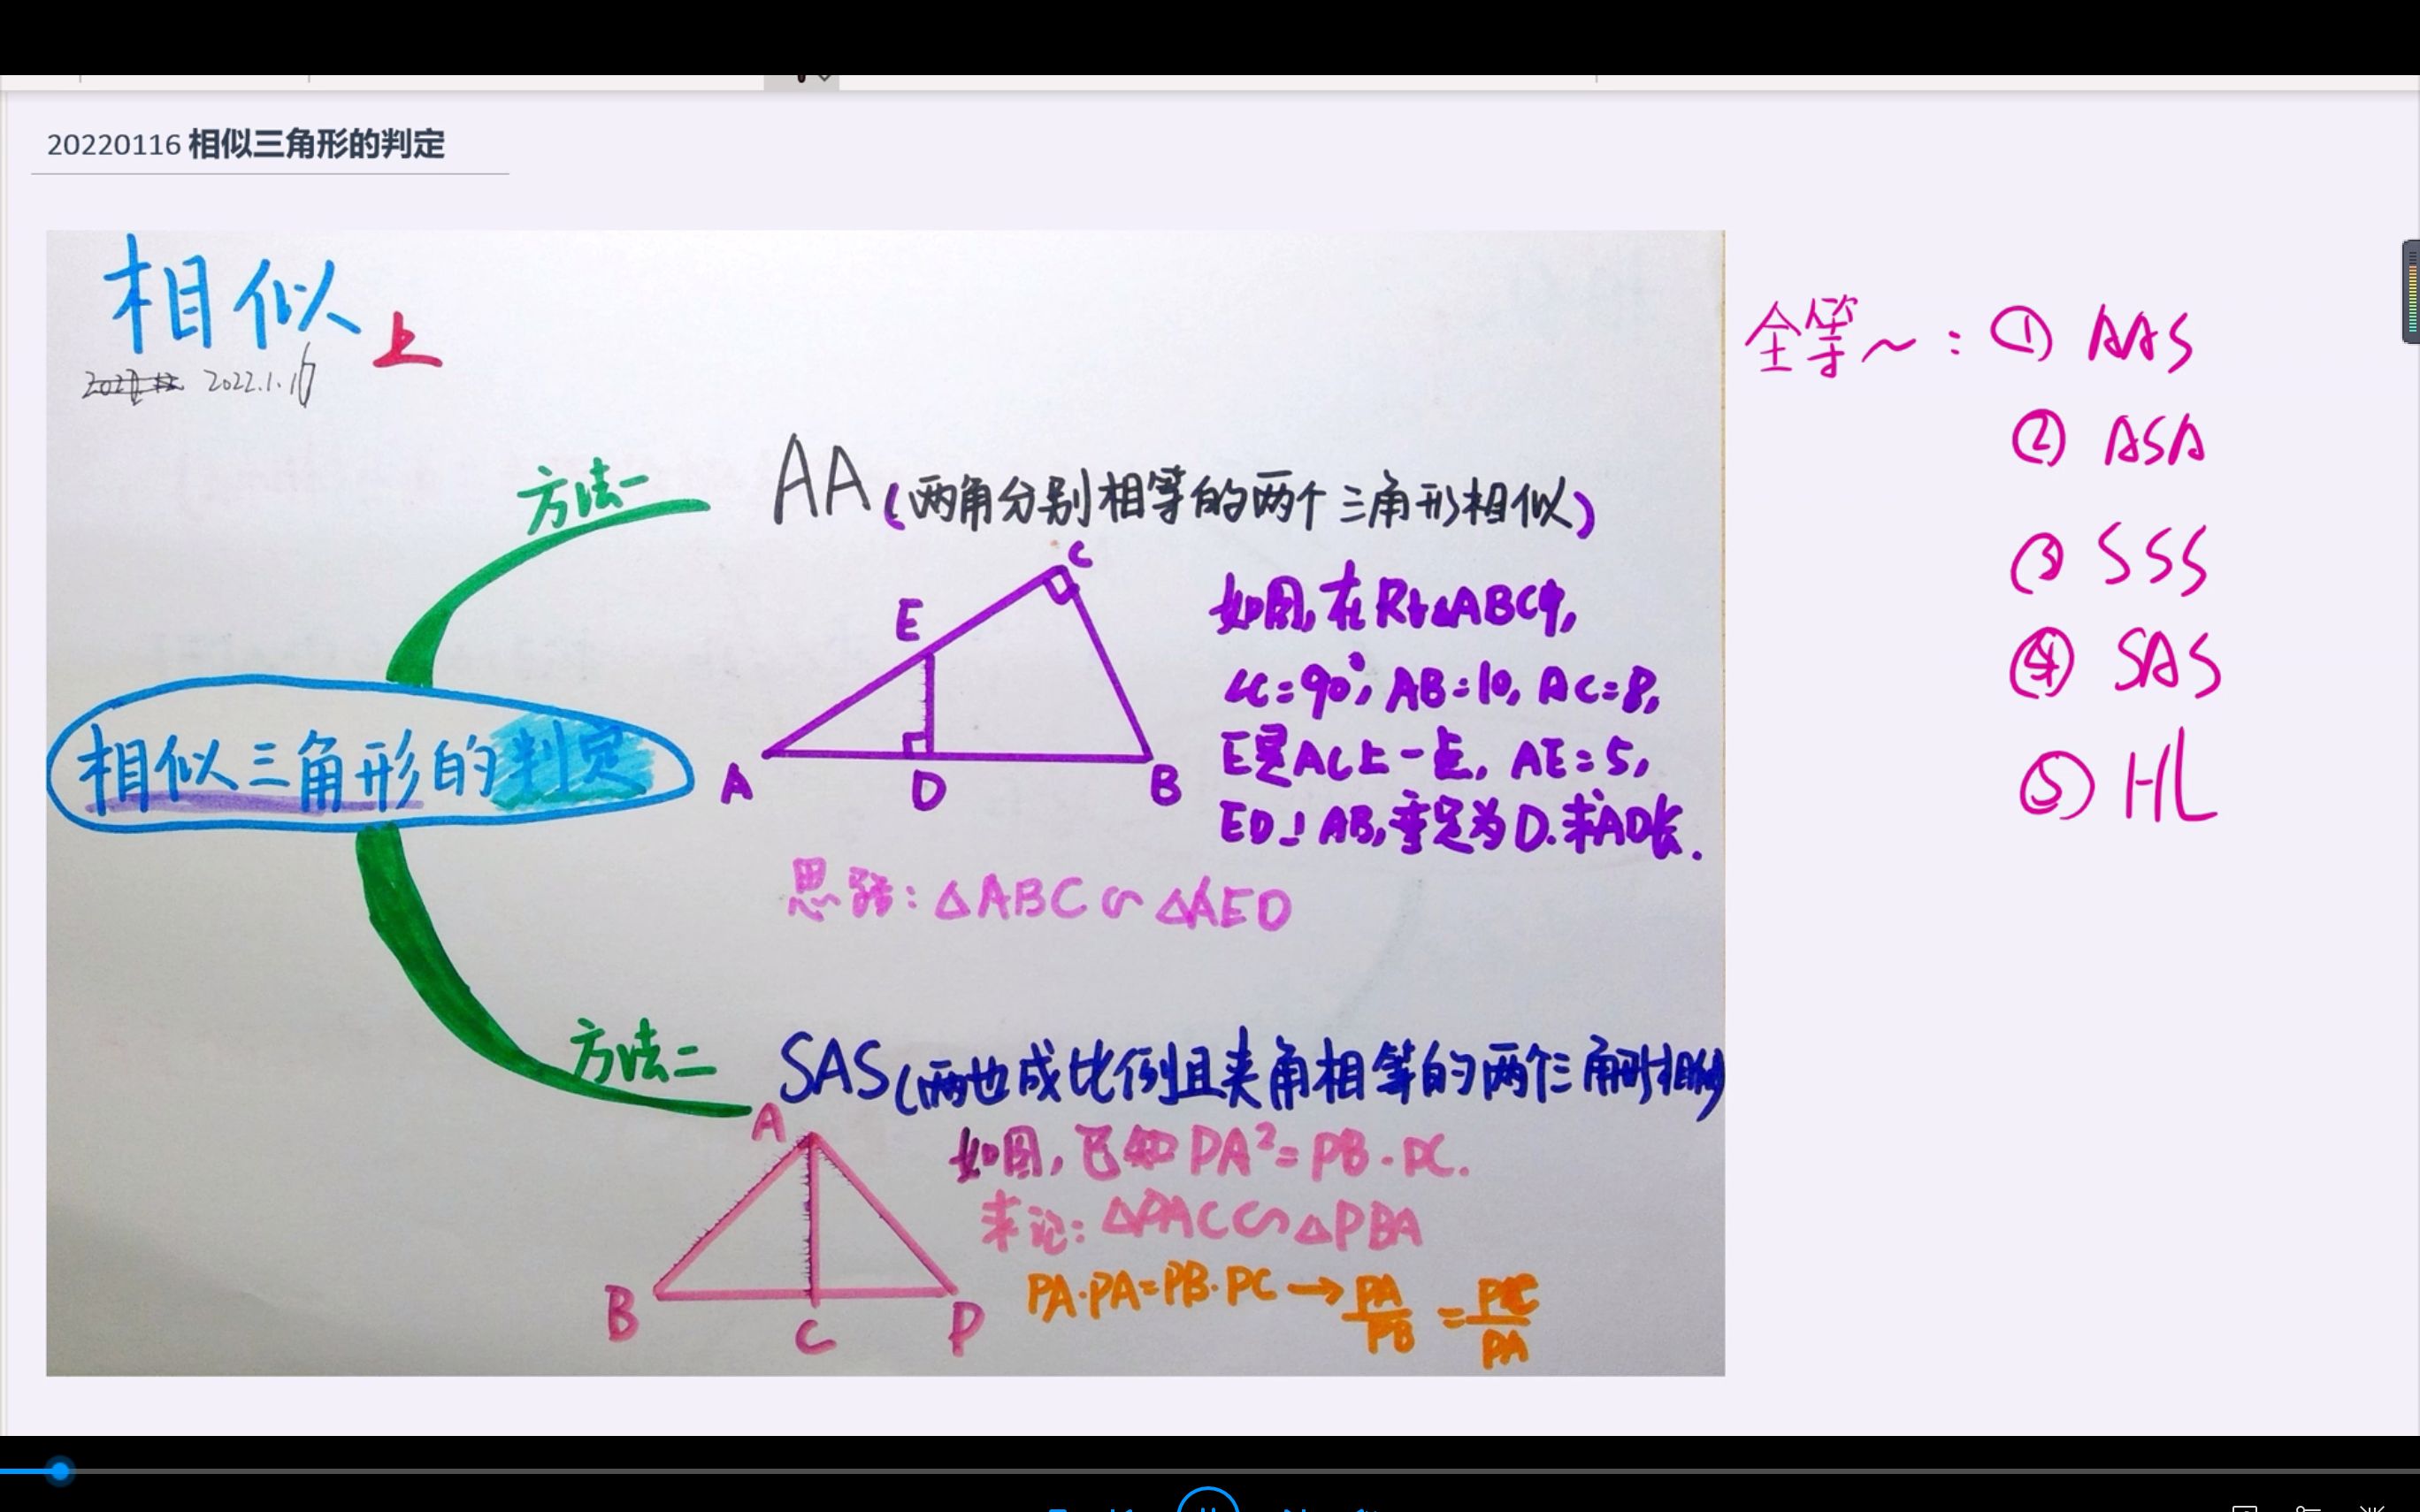 20220116 相似三角形的判定
相似 上
2022.1.16
方法一
AA(两角分别相等的两个三角形相似)
C
E
A
D
B
如图,在Rt△ABC中,
∠C=90°, AB=10, AC=8,
E是AC上一点, AE=5,
ED⊥AB,垂足为D.求AD长.
思路:△ABC∽△AED
相似三角形的判定
方法二
SAS(两边成比例且夹角相等的两个三角形相似)
A
B
C
P
如图,已知PA²=PB·PC.
求证:△PAC∽△PBA
PA·PA=PB·PC→PA/PB=PC/PA
全等~:① AAS
② ASA
③ SSS
④ SAS
⑤ HL